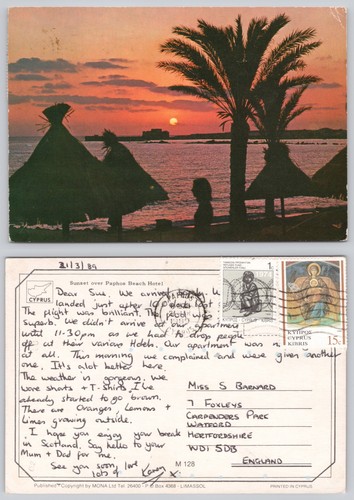 21/3/89
Sunset over Paphos Beach Hotel
CYPRUS
Dear Sue, We arrived
landed just after 10 o'clock last
The flight was brilliant. The food was
superb. We didn't arrive at our apartment
until 11-30pm as we had to drop people
off at their various Hotels. Our apartment was n
at all. This morning we complained and were given another
one. It's alot better here.
The weather is gorgeous, we
wore shorts + T-Shirts. I've
already started to go brown.
There are Oranges, Lemons +
Limes growing outside.
I hope you enjoy your break
in Scotland. Say hello to your
Mum + Dad for me.
See you soon,
lots of
Karen x
1
ΚΥΠΡΟΣ
CYPRUS
KIBRIS
15c
MISS S BARNARD
7 FOXLEYS
CARPENDERS PARK
WATFORD
HERTFORDSHIRE
WD1 5DB
ENGLAND
M 128
Published Copyright by MONA Ltd Tel. 26400 - P.O. Box 4988 - LIMASSOL
PRINTED IN CYPRUS